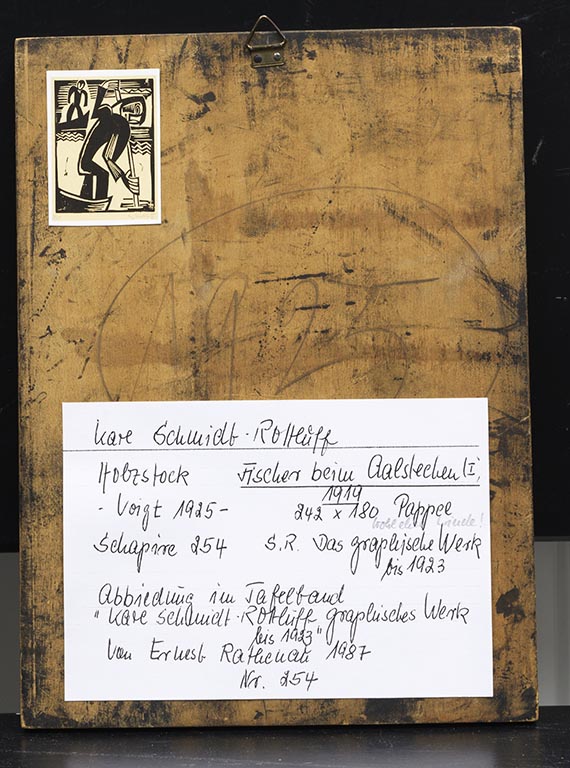 Karl Schmidt-Rottluff
Holzstock Fischer beim Aalstechen I,
1919
- Voigt 1925 - 242 x 180 Pappel
Schapire 254 S.R. Das graphische Werk
bis 1923
Abbildung im Tafelband
"Karl Schmidt-Rottluff graphisches Werk
bis 1923"
von Ernest Rathenau 1987
Nr. 254